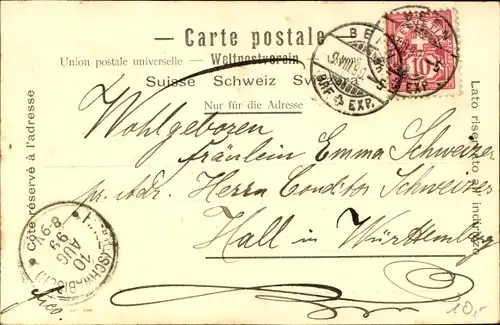 Carte postale
Union postale universelle — Weltpostverein
Suisse Schweiz
Nur für die Adresse
Côté réservé à l'adresse
Lato riservato indirizzo
10
EXP.
Wohlgeboren
Fräulein Emma Schweizer
pr. Adr. Herrn Conditor Schweizer
Hall in Württemberg
10
AUG
99
10,-